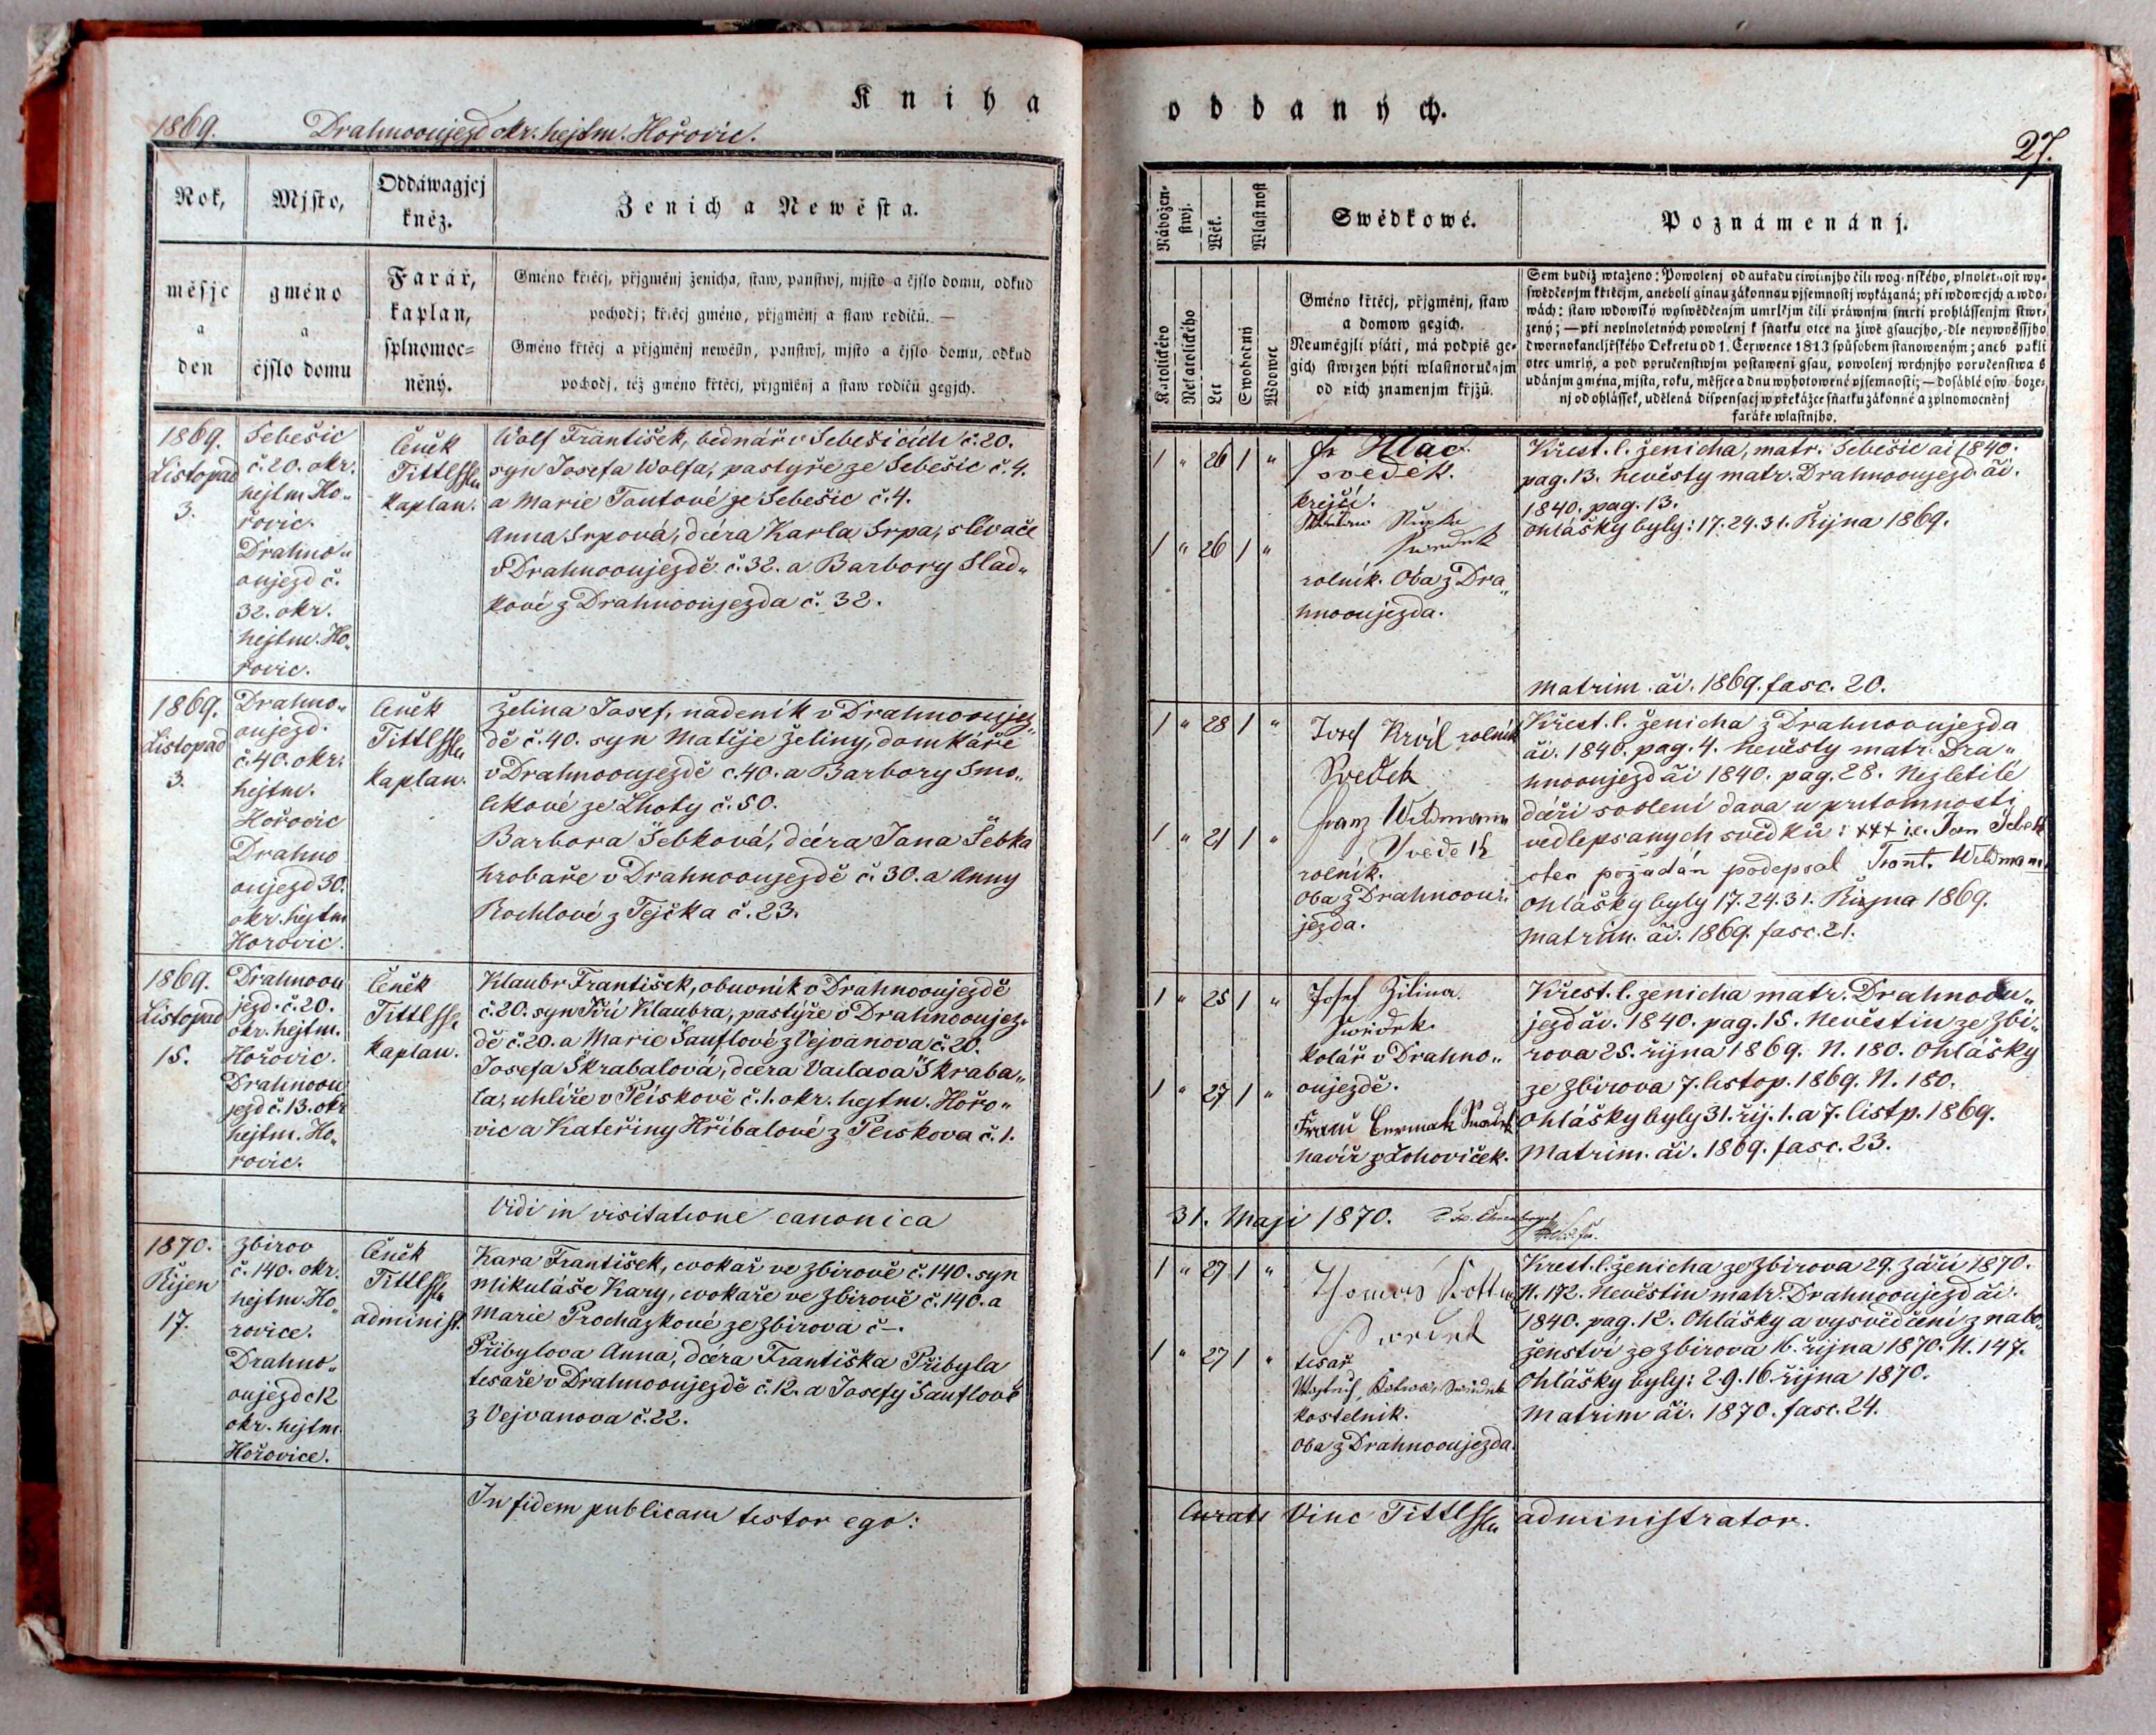 Kniha
oddaných.
1869. Drahnooujezd okr. hejtm. Hořovic.
27.
Rok,
Mjsto,
Oddáwagjcj
kněz.
Ženich a Newěsta.
měsjc
a
den
gméno
a
čjslo domu
Farář,
kaplan,
splnomoc=
něný.
Gméno křtěcj, přjgměnj ženicha, staw, panstwj, mjsto a čjslo domu, odkud
pochodj; křtěcj gméno, přjgměnj a staw rodičů. —
Gméno křtěcj a přjgměnj newěsty, panstwj, mjsto a čjslo domu, odkud
pochodj, též gméno křtěcj, přjgměnj a staw rodičů gegjch.
1869.
Listopad
3.
Sebešic
č. 20. okr.
hejtm. Ho„
řovic.
Drahno„
oujezd č.
32. okr.
hejtm. Ho„
řovic.
Čeněk
Tittl
kaplan.
Wolf František, bednář v Sebešicích č. 20.
syn Josefa Wolfa, pastýře ze Sebešic č. 4.
a Marie Toutové ze Sebešic č. 4.
Anna Srpová, dcera Karla Srpa, slevače
v Drahnooujezdě č. 32. a Barbory Slad„
kové z Drahnooujezda č. 32.
1869.
Listopad
3.
Drahno„
oujezd.
č. 40. okr.
hejtm.
Hořovic
Drahno
oujezd 30.
okr. hejtm
Horovic.
Čeněk
Tittl
kaplan.
Želina Josef, nadeník v Drahnooujez„
dě č. 40. syn Matěje Želiny, domkáře
v Drahnooujezdě č. 40. a Barbory Smo„
likové ze Lhoty č. 50.
Barbora Šebková, dcera Jana Šebka
hrobaře v Drahnooujezdě č. 30. a Anny
Rochlové z Tejčka č. 23.
1869.
Listopad
15.
Drahnoou
jezd. č. 20.
okr. hejtm.
Hořovic.
Drahnoou
jezd č. 13. okr
hejtm. Ho„
rovic.
Čeněk
Tittl
kaplan.
Klaubr František, obuvník v Drahnooujezdě
č. 20. syn Jiří Klaubra, pastýře v Drahnooujez„
dě č. 20. a Marie Šauflové z Vejvanova č. 20.
Josefa Škrabalová, dcera Vaclava Škraba„
la, uhlíře v Pliskově č. 1. okr. hejtm. Hořo„
vic a Kateřiny Hříbalové z Pliskova č. 1.
Vidi in visitatione canonica
1870.
Říjen
17.
Zbirov
č. 140. okr.
hejtm. Ho„
rovice.
Drahno„
oujezd č 12
okr. hejtm.
Hořovice.
Čeněk
Tittl
administ.
Kara František, cvokař ve Zbirově č. 140. syn
Mikuláše Kary, cvokaře ve Zbirově č. 140. a
Marie Prochazkové ze Zbirova č —.
Přibylova Anna, dcera Františka Přibyla
tesaře v Drahnooujezdě č. 12. a Josefy Šauflové
z Vejvanova č. 22.
In fidem publicam testor ego:
Nábožen-
stwj.
Wěk.
Wlastnost
Katolického
Nekatolického
Let
Swobodný
Wdowec
Swědkowé.
Gméno křtěcj, přjgměnj, staw
a domow gegich.
Neumějli psáti, má podpis ge=
gich stwrzen býti wlastnoručnjm
od nich znamenjm křjžů.
Poznámenánj.
Sem budiž wtaženo: Powolenj od auřadu ciwilnjho čili wogenského, plnoletnost wy=
swědčenjm křtěcjm, aneboli ginau zákonnau pjsemnostj wykázaná; při wdowcjch a wdo=
wách: staw wdowský wyswědčenjm umrlčjm čili práwnjm smrti prohlássenjm stwr=
zený; — při neplnoletných powolenj k sňatku otce na žiwě gsaucjho, dle neywyssjjho
dwornokancljřského Dekretu od 1. Čerwence 1813 spůsobem stanoweným; aneb pakli
otec umrlý, a pod poručenstwjm postaweni gsau, powolenj wrchnjho poručenstwa s
udánjm gména, mjsta, roku, měsjce a dnu wyhotowené pjsemnosti; — dosáhlé oswoboze=
nj od ohlássek, udělená dispensacj w překážce sňatku zákonné a zplnomocněnj
faráře wlastnjho.
1 „ 26 1 „
1 „ 26 1 „
svedek.
krejčí.
rolník. Oba z Dra„
hnooujezda.
Křest. l. ženicha, matr. Sebešic ai 1840.
pag. 13. nevěsty matr. Drahnooujezd. ăi.
1840. pag. 13.
Ohlášky byly: 17. 24. 31. Října 1869.
Matrim. ăi. 1869. fasc. 20.
1 „ 28 1 „
1 „ 21 1 „
Josef Král rolník
Svedek
Franz Wildmann
Svedek
rolník.
Oba z Drahnoou„
jezda.
Křest. l. ženicha z Drahnooujezda
ăi. 1840. pag. 4. nevěsty matr. Dra„
hnooujezd ăi 1840. pag. 28. Nezletilé
dceři svolení dava u přitomnosti
vedlepsanych svědků: +++ i.e. Jan Šebek
otec požádán podepsal Frant. Wildmann
Ohlášky byly 17. 24. 31. Října 1869.
Matrim. ăi. 1869. fasc. 21.
1 „ 25 1 „
1 „ 27 1 „
Josef Žilina.
Swědek.
kolář v Drahno„
oujezdě.
Franc Čermak Swedek
havíř z Lohoviček.
Křest. l. zenicha matr. Drahnoou„
jezd ăi. 1840. pag. 15. Nevěstin ze Zbi„
rova 25. října 1869. N. 180. Ohlášky
ze Zbirova 7. listop. 1869. N. 180.
Ohlášky byly 31. říj. 1. a 7. listp. 1869.
Matrim. ăi. 1869. fasc. 23.
31. Maji 1870.
1 „ 27 1 „
1 „ 27 1 „
Thomas
Swedek
tesař
Swědek
kostelník.
Oba z Drahnooujezda.
Křest. l. ženicha ze Zbirova 29. Září 1870.
N. 172. Nevěstin matr. Drahnooujezd ăi.
1840. pag. 12. Ohlášky a vysvědčení z nabo„
ženství ze Zbirova 16. října 1870. N. 147.
Ohlášky byly: 2 9. 16. října 1870.
Matrim ăi. 1870. fasc. 24.
Vinc Tittl administrator.